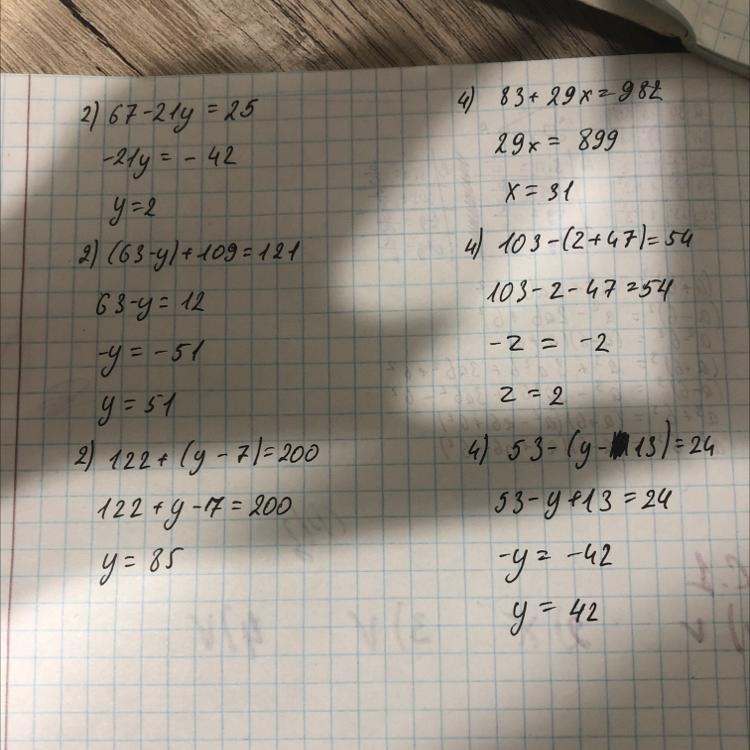 2) 67-21y = 25
-21y = - 42
y=2
2) (63-y)+109=121
63-y= 12
-y= -51
y= 51
2) 122+(y-7)=200
122+y-7=200
y= 85
4) 83+29x=982
29x= 899
x=31
4) 103-(z+47)=54
103-z-47=54
-z = -2
z = 2
4) 53-(y-13)=24
53-y+13=24
-y= -42
y= 42